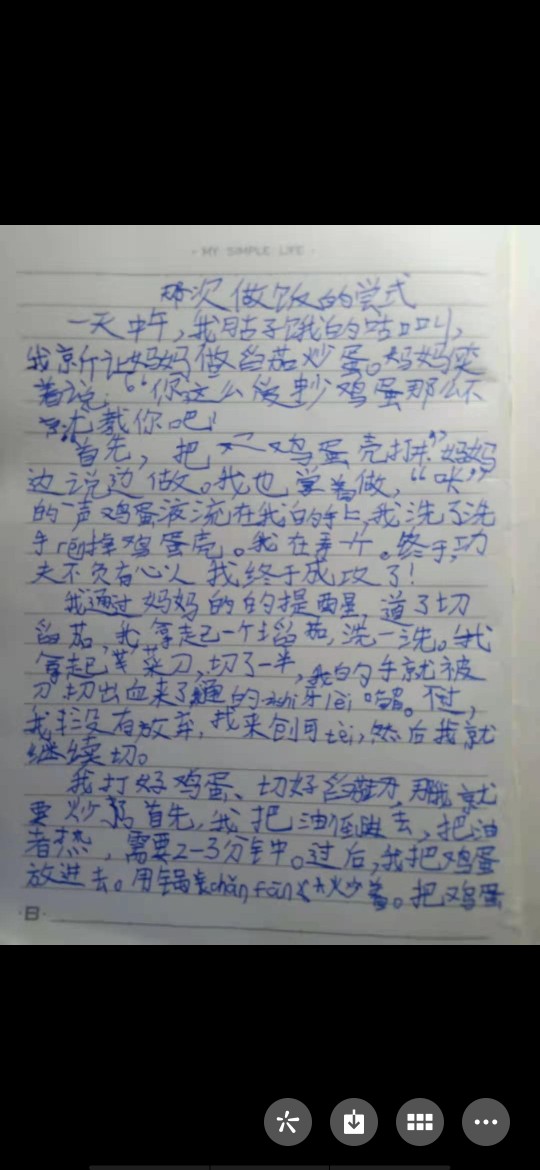 · MY SIMPLE LIFE ·
次做饭的尝式
一天中午,我肚子饿的咕叫,
我就让妈妈做番茄炒蛋。妈妈笑
着说:“你这么爱炒鸡蛋那么不
尤教你吧!
首先,把鸡蛋壳打开”妈妈
边说边做。我也学着做,“咔”
的一声鸡蛋液流在我的手上,我洗了洗
手rēng掉鸡蛋壳。我在弄个。终于,功
夫不负有心人我终于成攻了!
我通过妈妈的的提醒,道了切
番茄,我拿起一个番茄,洗一洗。我
拿起菜刀,切了一半,我的手就被
刀切出血来了的zhi牙lèi嘴。不过,
我并没有放弃,找来创可tēi,然后我就
继续切。
我打好鸡蛋、切好番茄,那我就
要炒了首先,我把油倒进去,把油
者热,需要2-3分钟中。过后,我把鸡蛋
放进去。用锅chǎn fān火炒着。把鸡蛋
·B·